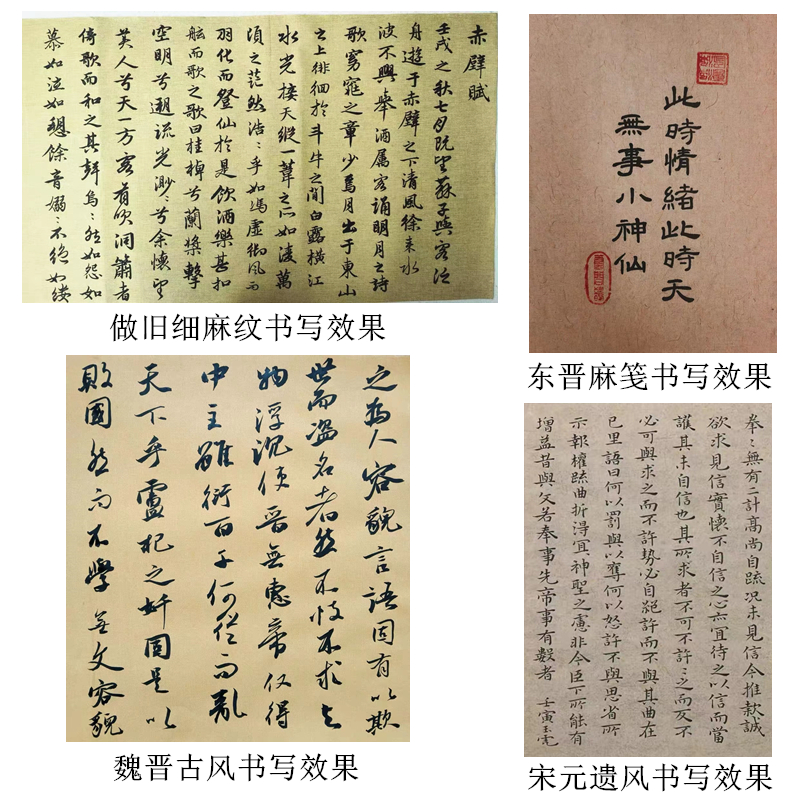 赤壁賦
壬戌之秋七月既望蘇子與客泛
舟遊于赤壁之下清風徐来水
波不興舉酒屬客誦明月之詩
歌窈窕之章少焉月出于東山
之上徘徊於斗牛之間白露横江
水光接天縱一葦之所如凌萬
頃之茫然浩々乎如馮虚御風而
羽化而登仙於是飲酒樂甚扣
舷而歌之歌曰桂棹兮蘭槳擊
空明兮遡流光渺々兮余懷望
美人兮天一方客有吹洞簫者
倚歌而和之其聲烏々然如怨如
慕如泣如愬餘音嫋々不絶如縷
做旧细麻纹书写效果
此時情緒此時天
無事小神仙
东晋麻笺书写效果
之為人容貌言語固有以欺
世而盗名者然不忮不求与
物浮沉使晋無惠帝仅得
中主雖衍百千何從而亂
天下乎盧杞之奸固足以
敗國然而不學無文容貌
魏晋古风书写效果
拳々無有二計高尚自疏况未見信今推款誠
欲求見信實懷不自信之心亦宜待之以信而當
護其未自信也其所求者不可不許々之而反不
必可與求之而不許勢必自絕許而不與其曲在
己里語曰何以罰與以奪何以怒許不與思省所
示報權疏曲折得宜神聖之慮非今臣下所能有
增益昔與文若奉事先帝事有數者 壬寅
宋元遗风书写效果